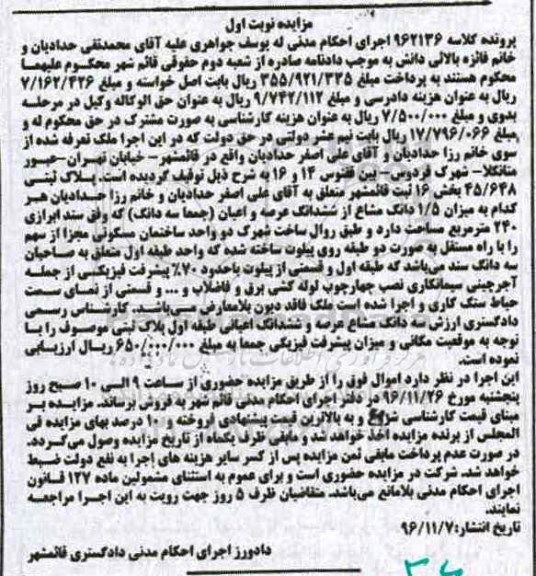 مزایده نوبت اول
پرونده کلاسه ۹۶۲۱۳۶ اجرای احکام مدنی له یوسف جواهری علیه آقای محمدتقی حدادیان و
خانم فائزه بالائی دانش به موجب دادنامه صادره از شعبه دوم حقوقی قائم شهر محکوم علیهما
محکوم هستند به پرداخت مبلغ ۳۵۵/۹۲۱/۳۳۵ ریال بابت اصل خواسته و مبلغ ۷/۱۶۲/۴۲۶
ریال به عنوان هزینه دادرسی و مبلغ ۹/۷۴۲/۱۱۲ ریال به عنوان حق الوکاله وکیل در مرحله
بدوی و مبلغ ۷/۵۰۰/۰۰۰ ریال به عنوان هزینه کارشناسی به صورت مشترک در حق محکوم له و
مبلغ ۱۷/۷۹۶/۰۶۶ ریال بابت نیم عشر دولتی در حق دولت که در این اجرا ملک تعرفه شده از
سوی خانم رزا حدادیان و آقای علی اصغر حدادیان واقع در قائمشهر- خیابان تهران-عبور
متانکلا- شهرک فردوس- بین ققنوس ۱۴ و ۱۶ به شرح ذیل توقیف گردیده است. پلاک ثبتی
۴۵/۶۴۸ بخش ۱۶ ثبت قائمشهر متعلق به آقای علی اصغر حدادیان و خانم رزا حدادیان هر
کدام به میزان ۱/۵ دانک مشاع از ششدانک عرصه و اعیان (جمعا سه دانک) که وفق سند ابرازی
۲۴۰ مترمربع مساحت دارد و طبق روال ساخت شهرک دو واحد ساختمان مسکونی مجزا از سهم
را با راه مستقل به صورت دو طبقه روی پیلوت ساخته شده که واحد طبقه اول متعلق به صاحبان
سه دانک سند می‌باشد که طبقه اول و قسمتی از پیلوت باحدود ۷۰٪ پیشرفت فیزیکی از جمله
آجرچینی سیمانکاری نصب چهارچوب لوله کشی برق و فاضلاب و ... و قسمتی از نمای سمت
حیاط سنگ کاری و اجرا شده است ملک فاقد دیون بلامعارض می‌باشد. کارشناس رسمی
دادگستری ارزش سه دانک مشاع عرصه و ششدانک اعیانی طبقه اول پلاک ثبتی موصوف را با
توجه به موقعیت مکانی و میزان پیشرفت فیزیکی جمعا به مبلغ ۶۵۰/۰۰۰/۰۰۰ ریال ارزیابی
نموده است.
این اجرا در نظر دارد اموال فوق را از طریق مزایده حضوری از ساعت ۹ الی ۱۰ صبح روز
پنجشنبه مورخ ۹۶/۱۱/۲۶ در دفتر اجرای احکام مدنی قائم شهر به فروش برساند. مزایده بر
مبنای قیمت کارشناسی شروع و به بالاترین قیمت پیشنهادی فروخته و ۱۰ درصد بهای مزایده فی
المجلس از برنده مزایده اخذ خواهد شد و مابقی ظرف یکماه از تاریخ مزایده وصول می‌گردد.
در صورت عدم پرداخت مابقی ثمن مزایده پس از کسر سایر هزینه های اجرا به نفع دولت ضبط
خواهد شد. شرکت در مزایده حضوری است و برای عموم به استثنای مشمولین ماده ۱۲۷ قانون
اجرای احکام مدنی بلامانع می‌باشد. متقاضیان ظرف ۵ روز جهت رویت به این اجرا مراجعه
نمایند.
تاریخ انتشار: ۹۶/۱۱/۷
دادورز اجرای احکام مدنی دادگستری قائمشهر